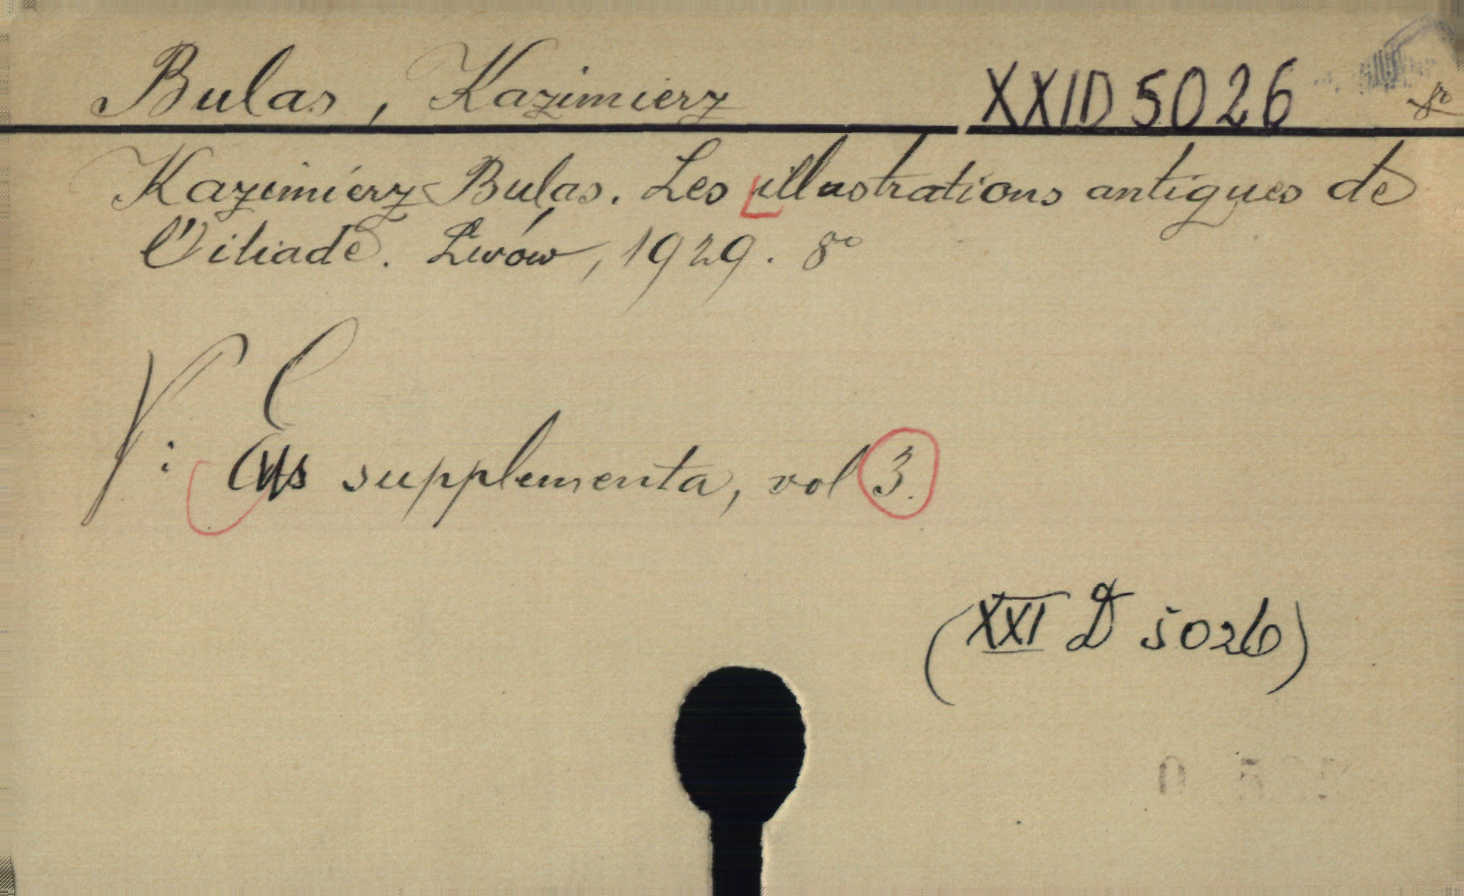 Bulas, Kazimierz XXI D 5026 8°
Kazimierz Bulas. Les illustrations antiques de
l'iliade. Lwów, 1929. 8°
V: Eus supplementa, vol 3.
(XXI D 5026)